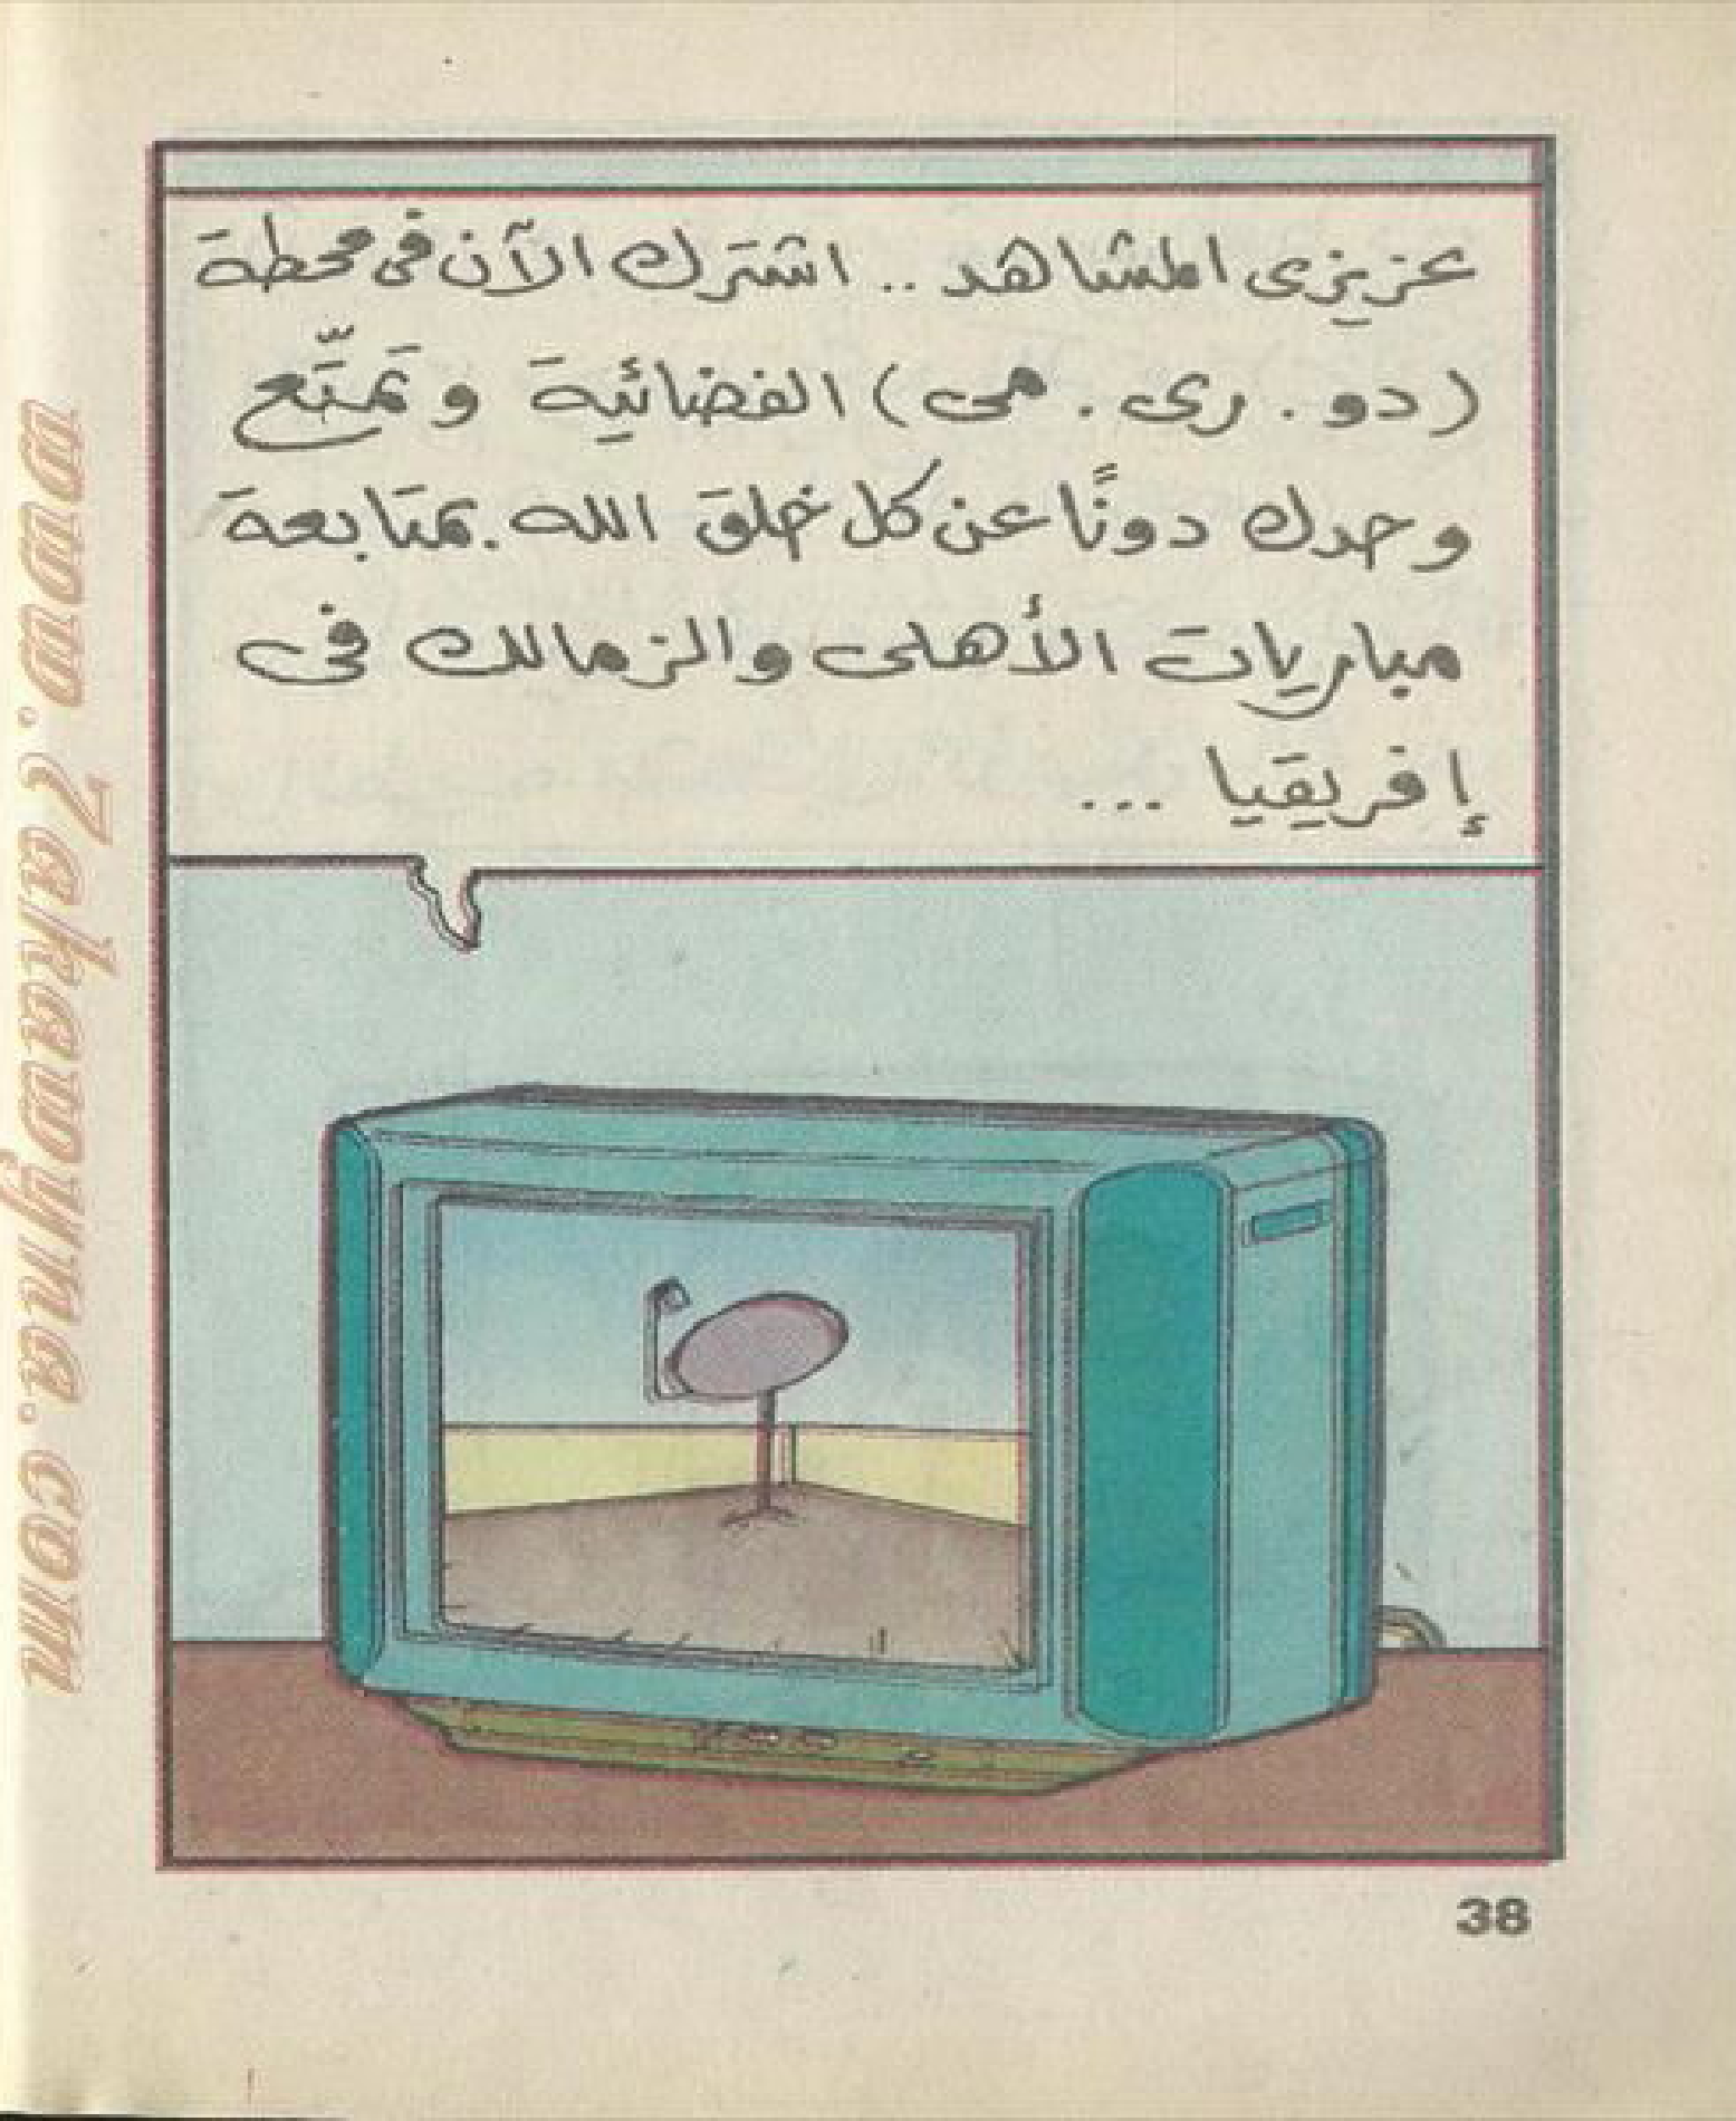 عزيزى المشاهد .. اشترك الآن فى محطة
(دو . رى . مى) الفضائية وتمتّع
وحدك دونًا عن كل خلق الله . بمتابعة
مباريات الأهلى والزمالك فى
إفريقيا ...
38
www.7akawyna.com